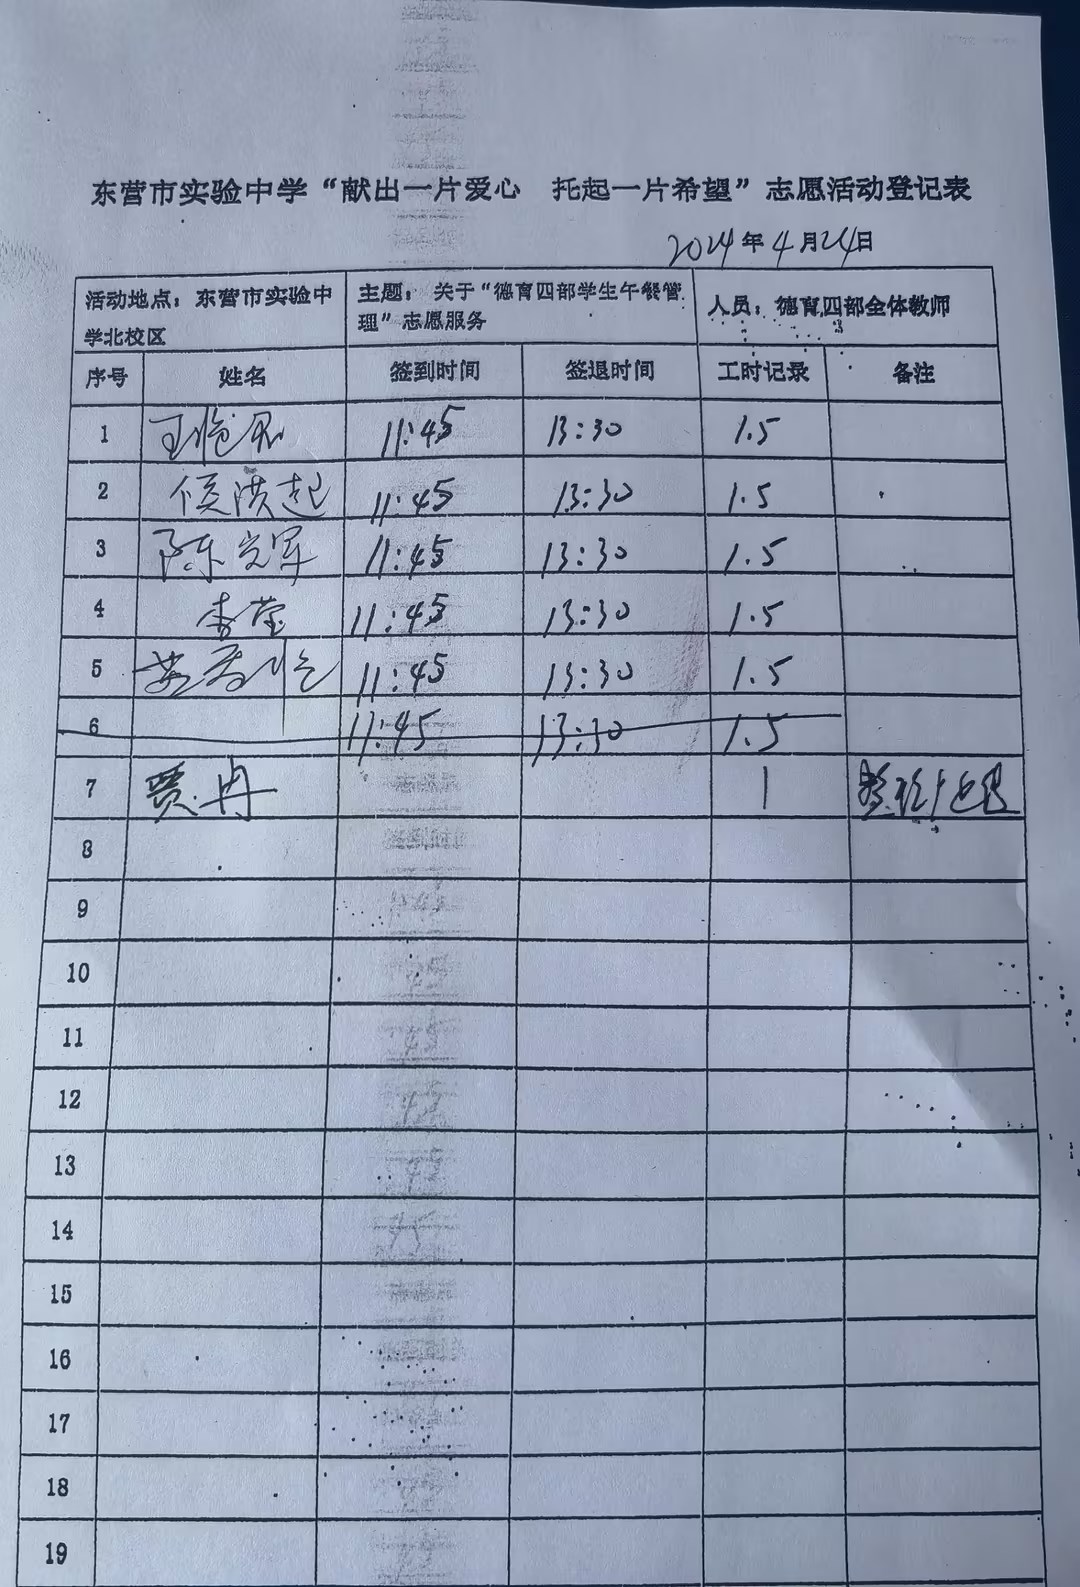 东营市实验中学“献出一片爱心 托起一片希望”志愿活动登记表
2024年4月24日
活动地点：东营市实验中学北校区 主题：关于“德育四部学生午餐管理”志愿服务 人员：德育四部全体教师
序号 姓名 签到时间 签退时间 工时记录 备注
1 11:45 13:30 1.5
2 侯洪起 11:45 13:30 1.5
3 陈光军 11:45 13:30 1.5
4 李莹 11:45 13:30 1.5
5 11:45 13:30 1.5
6 11:45 13:30 1.5
7 贾冉 1
8
9
10
11
12
13
14
15
16
17
18
19